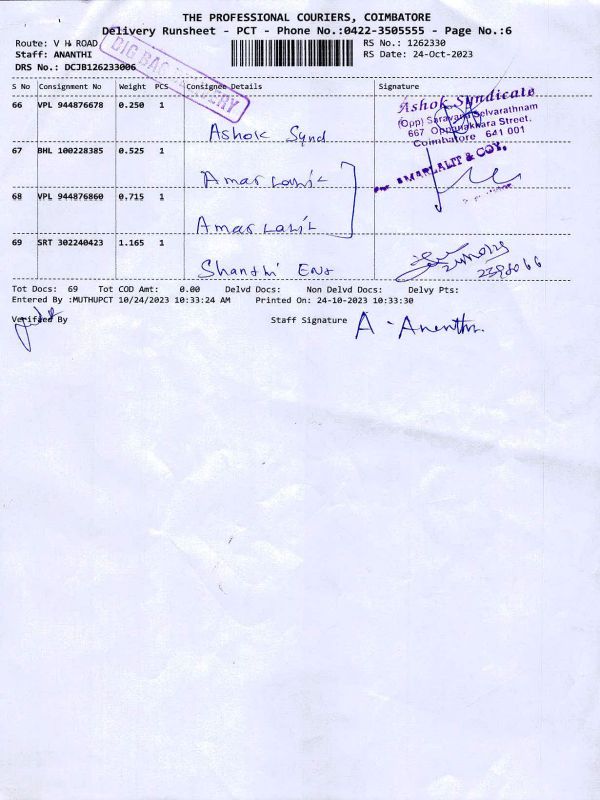 THE PROFESSIONAL COURIERS, COIMBATORE
Delivery Runsheet - PCT - Phone No.:0422-3505555 - Page No.:6
Route: V H ROAD RS No.: 1262330
Staff: ANANTHI RS Date: 24-Oct-2023
DRS No.: DCJB126233006
S No Consignment No Weight PCS Consignee Details Signature
66 VPL 944876678 0.250 1
Ashok Synd
Ashok Syndicate
(Opp) Saravana Selvarathnam
667 Oppanakkara Street,
Coimbatore 641 001
67 BHL 100228385 0.525 1
Amar Lalit
AMARLALIT & COY.
68 VPL 944876860 0.715 1
Amar Lalit
69 SRT 302240423 1.165 1
Shanthi Ent
Tot Docs: 69 Tot COD Amt: 0.00 Delvd Docs: Non Delvd Docs: Delvy Pts:
Entered By :MUTHUPCT 10/24/2023 10:33:24 AM Printed On: 24-10-2023 10:33:30
Verified By Staff Signature A. Ananthi.